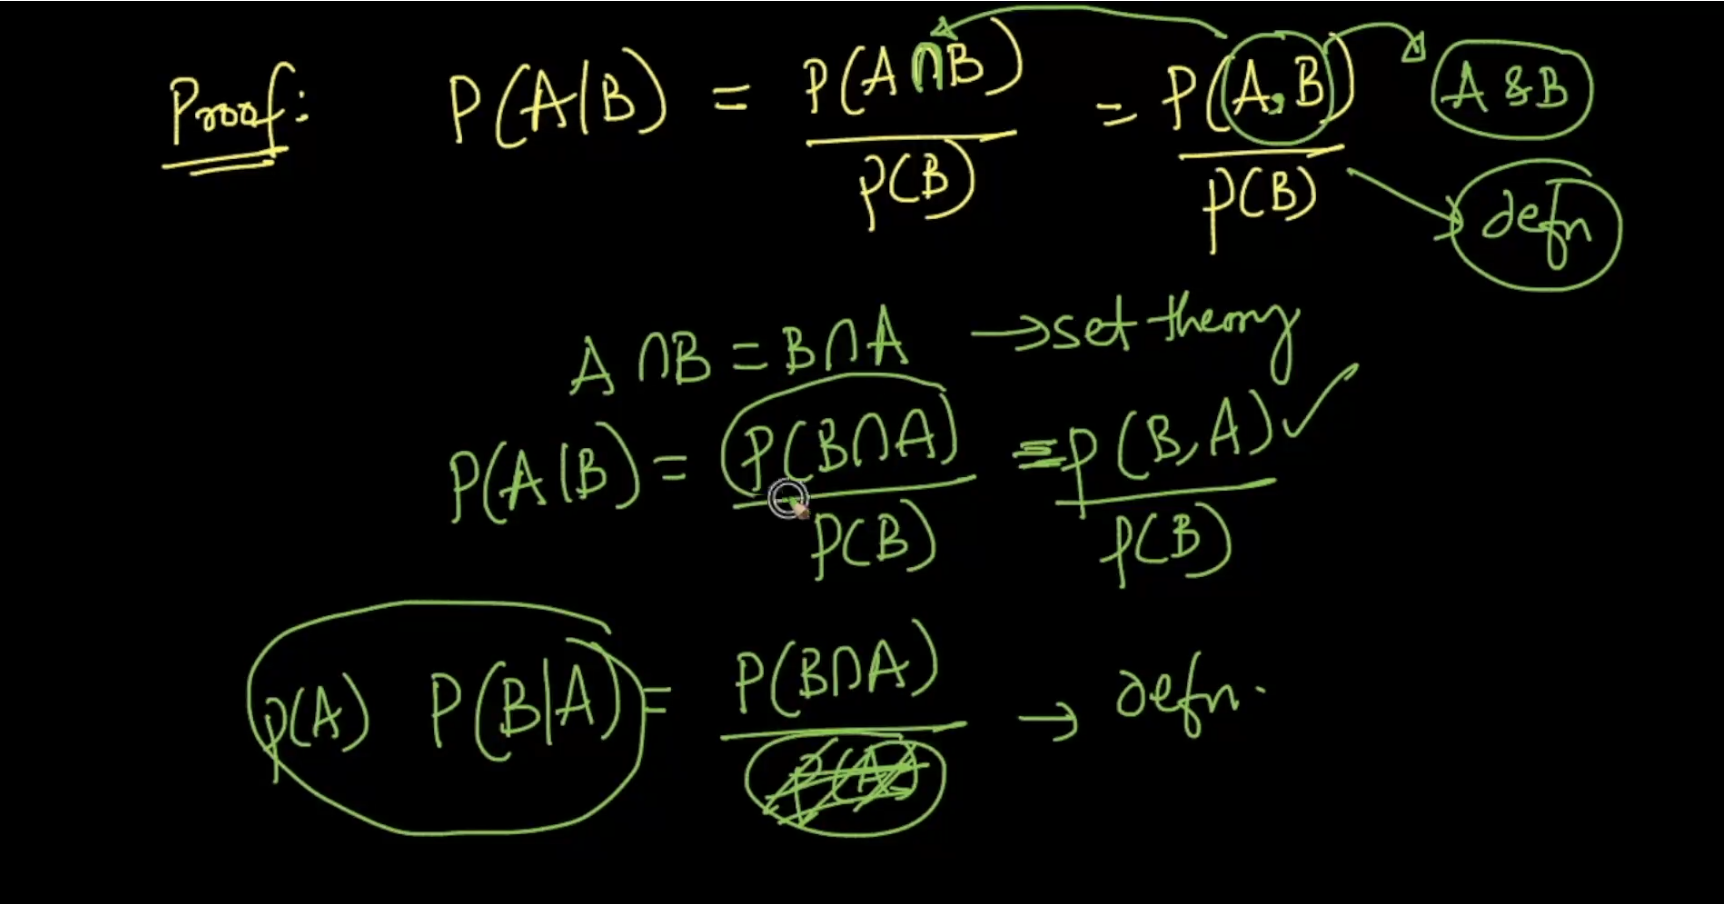 Proof: P(A|B) = P(A∩B) / P(B) = P(A,B) / P(B)
A & B
defn
A∩B = B∩A → set theory
P(A|B) = P(B∩A) / P(B) = P(B,A) / P(B) ✓
P(A) P(B|A) = P(B∩A) / P(A) → defn.